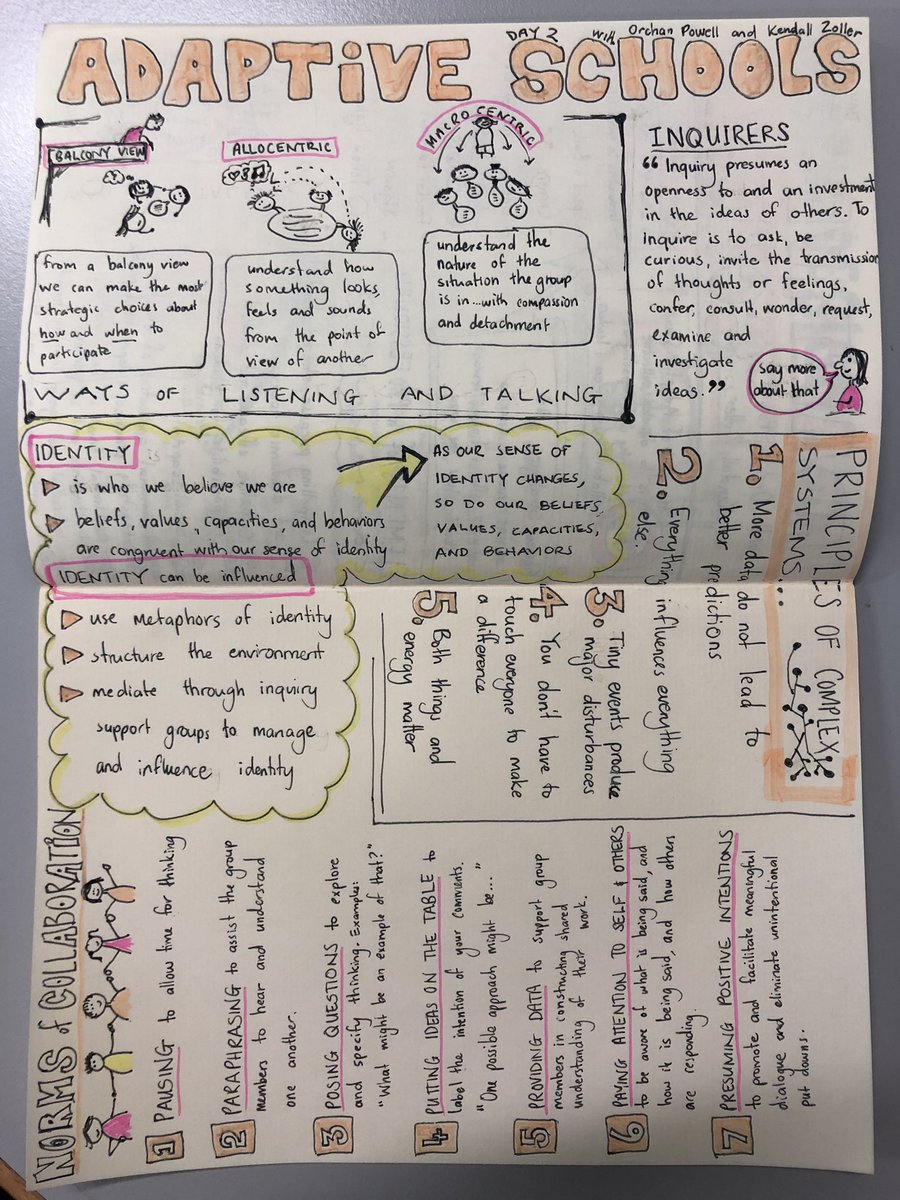 DAY 2 with Orchan Powell and Kendall Zoller
ADAPTIVE SCHOOLS
BALCONY VIEW
from a balcony view
we can make the most
strategic choices about
how and when to
participate
ALLOCENTRIC
understand how
something looks,
feels and sounds
from the point of
view of another
MACRO CENTRIC
understand the
nature of the
situation the group
is in...with compassion
and detachment
WAYS OF LISTENING AND TALKING
INQUIRERS
“Inquiry presumes an
openness to and an investment
in the ideas of others. To
inquire is to ask, be
curious, invite the transmission
of thoughts or feelings,
confer, consult, wonder, request,
examine and
investigate
ideas.”
say more
about that
IDENTITY
is who we believe we are
beliefs, values, capacities, and behaviors
are congruent with our sense of identity
AS OUR SENSE OF
IDENTITY CHANGES,
SO DO OUR BELIEFS,
VALUES, CAPACITIES,
AND BEHAVIORS
IDENTITY can be influenced
use metaphors of identity
structure the environment
mediate through inquiry
support groups to manage
and influence identity
PRINCIPLES OF COMPLEX
SYSTEMS...
1. More data do not lead to
better predictions
2. Everything influences everything
else.
3. Tiny events produce
major disturbances
4. You don't have to
touch everyone to make
a difference
5. Both things and
energy matter
NORMS of COLLABORATION
1 PAUSING to allow time for thinking
2 PARAPHRASING to assist the group
members to hear and understand
one another.
3 POSING QUESTIONS to explore
and specify thinking. Example:
"What might be an example of that?"
4 PUTTING IDEAS ON THE TABLE to
label the intention of your comments.
"One possible approach might be..."
5 PROVIDING DATA to support group
members in constructing shared
understanding of their work.
6 PAYING ATTENTION TO SELF & OTHERS
to be aware of what is being said, and
how it is being said, and how others
are responding
7 PRESUMING POSITIVE INTENTIONS
to promote and facilitate meaningful
dialogue and eliminate unintentional
put downs.